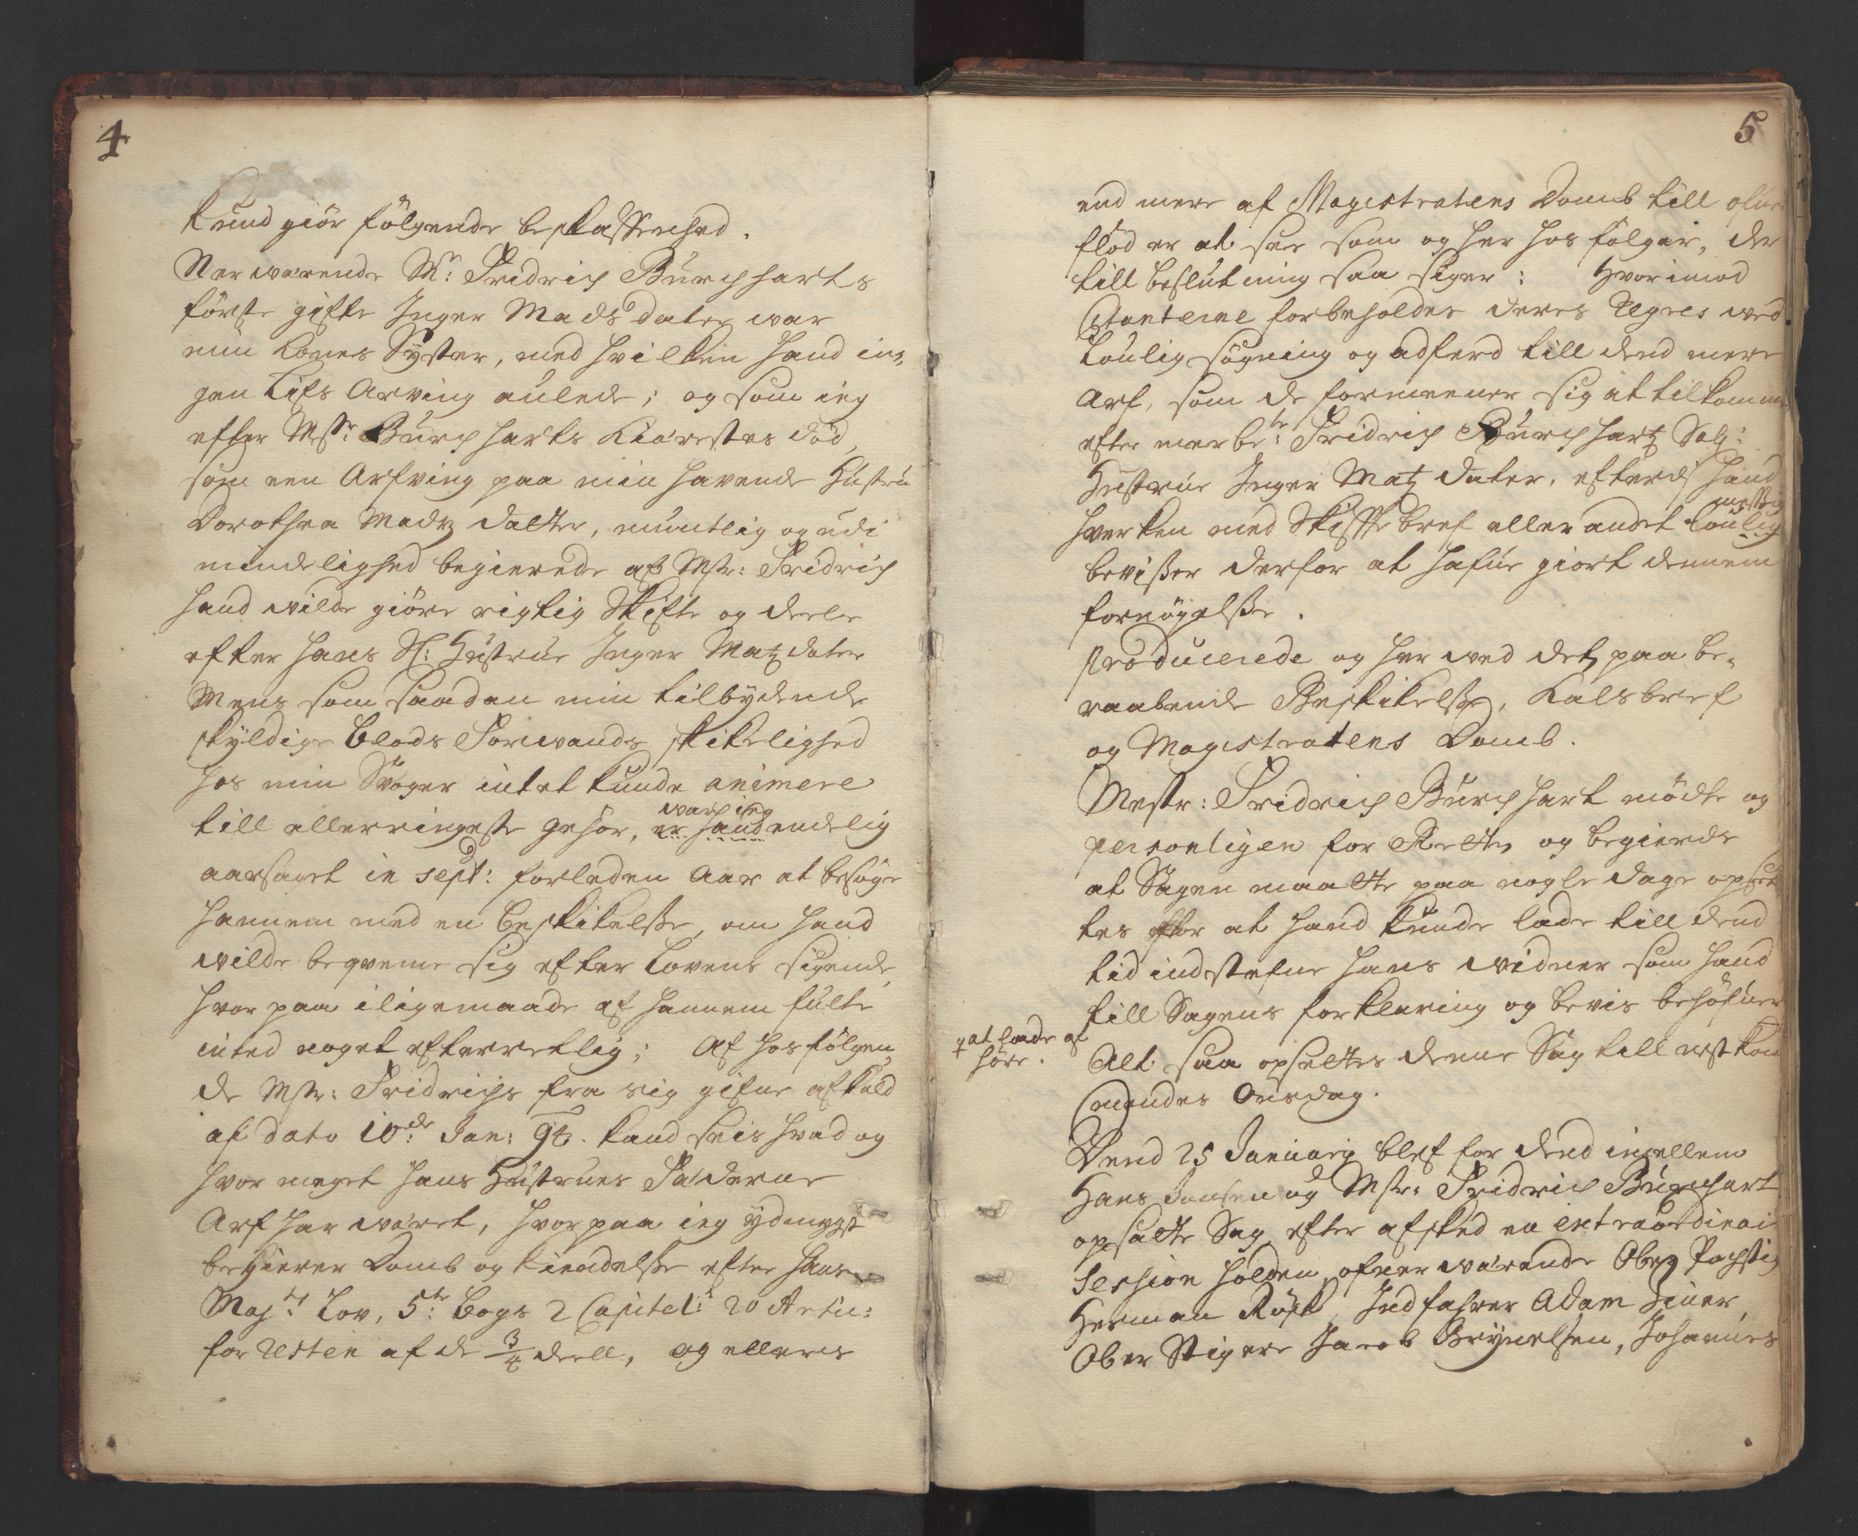 4
Kund giör følgende beskaffenhed.
Nerwærende Mr: Fridrich Burchharts
förste gifte Inger Mads dater war
min Kones Syster, med hvilken hand in-
gen Lifs Arving aulede; og som ieg
efter Mstr: Burchharts Kiærestes död,
som een Arfving paa min havende Hustru
Dorothea Madtz datter, muntlig og udi
mindelighed begierede af Mstr: Fridrich
hand wilde giöre rigtig Skifte og deele
efter hans Sl: Hustrue Inger Matz dater
Mens som saadan min tilbydende
skyldige blods Forwands skikelighed
hos min Svoger intet kunde animere
till allerringeste gehör, er hand warp ieg endelig
aarsaget in sept: forleden Aar at besøge
hannem med en beskikelsse, om hand
wilde beqveme sig efter Lovens sigende,
hvor paa i ligemaade af hannem fulte
inted noget efterretlig; Af hosfölgen
de Mstr: Fridrichs fra sig gifne afkald
af dato 10de Jan: 94. kand seis hvad og
hvor meget hans Hustrues Fæderne
Arf har wæret, hvorpaa ieg ydmygst
begierer Domb og kiendelsse efter hans
Majts Lov, 5te Bogs 2 Capitel: 20 Artic:
for Resten af de 3/4 deell, og ellers
5
end mere af Magistratens Domb till
flöd er at see som og her hos fölger, der
till beslutning saa siger: Hvorimod
Citanterne forbeholdes deres Regres ved
Loulig sögning og adferd till dend mere
Arf, som de formeener sig at tilkomme
efter merbete: Fridrich Burchhartz Salg:
Hustrue Inger Matz dater, efterdj hand
hverken med Skiffte bref eller andet Loulig messig
bevisser derfor at hafue giort dennem
fornöyelsse.
Producerede og her ved det paa be-
raabende Beskikelsse, Kalsbref
og Magistratens Domb.
Mestr: Fridrich Burchhart mödte og
personligen for Retten og begierde
at Sagen maatte paa nogle dage opset
tes for at hand kunde lade till dend
tid indstefne hans widner som hand
till Sagens forklaring og bevis behöfuer
# at lade af
höre.
Alt saa opsettes denne Sag till nest kom
mendes Onsdag.
Dend 25 Januarij blef for dend imellem
Hans Jansen og Mstr: Fridrich Burchhart
opsatte Sag efter afsked en extraordinair
Session holden, ofuerwærende Oberg
Herman Röst, Indfahrer Adam
Ober Stigere Jacob Brynelsen, Johannes